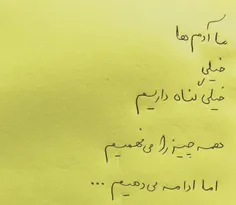 ما آدم ها
خیلی
خیلی گناه داریم
همه چیز را می فهمیم
اما ادامه می دهیم ...